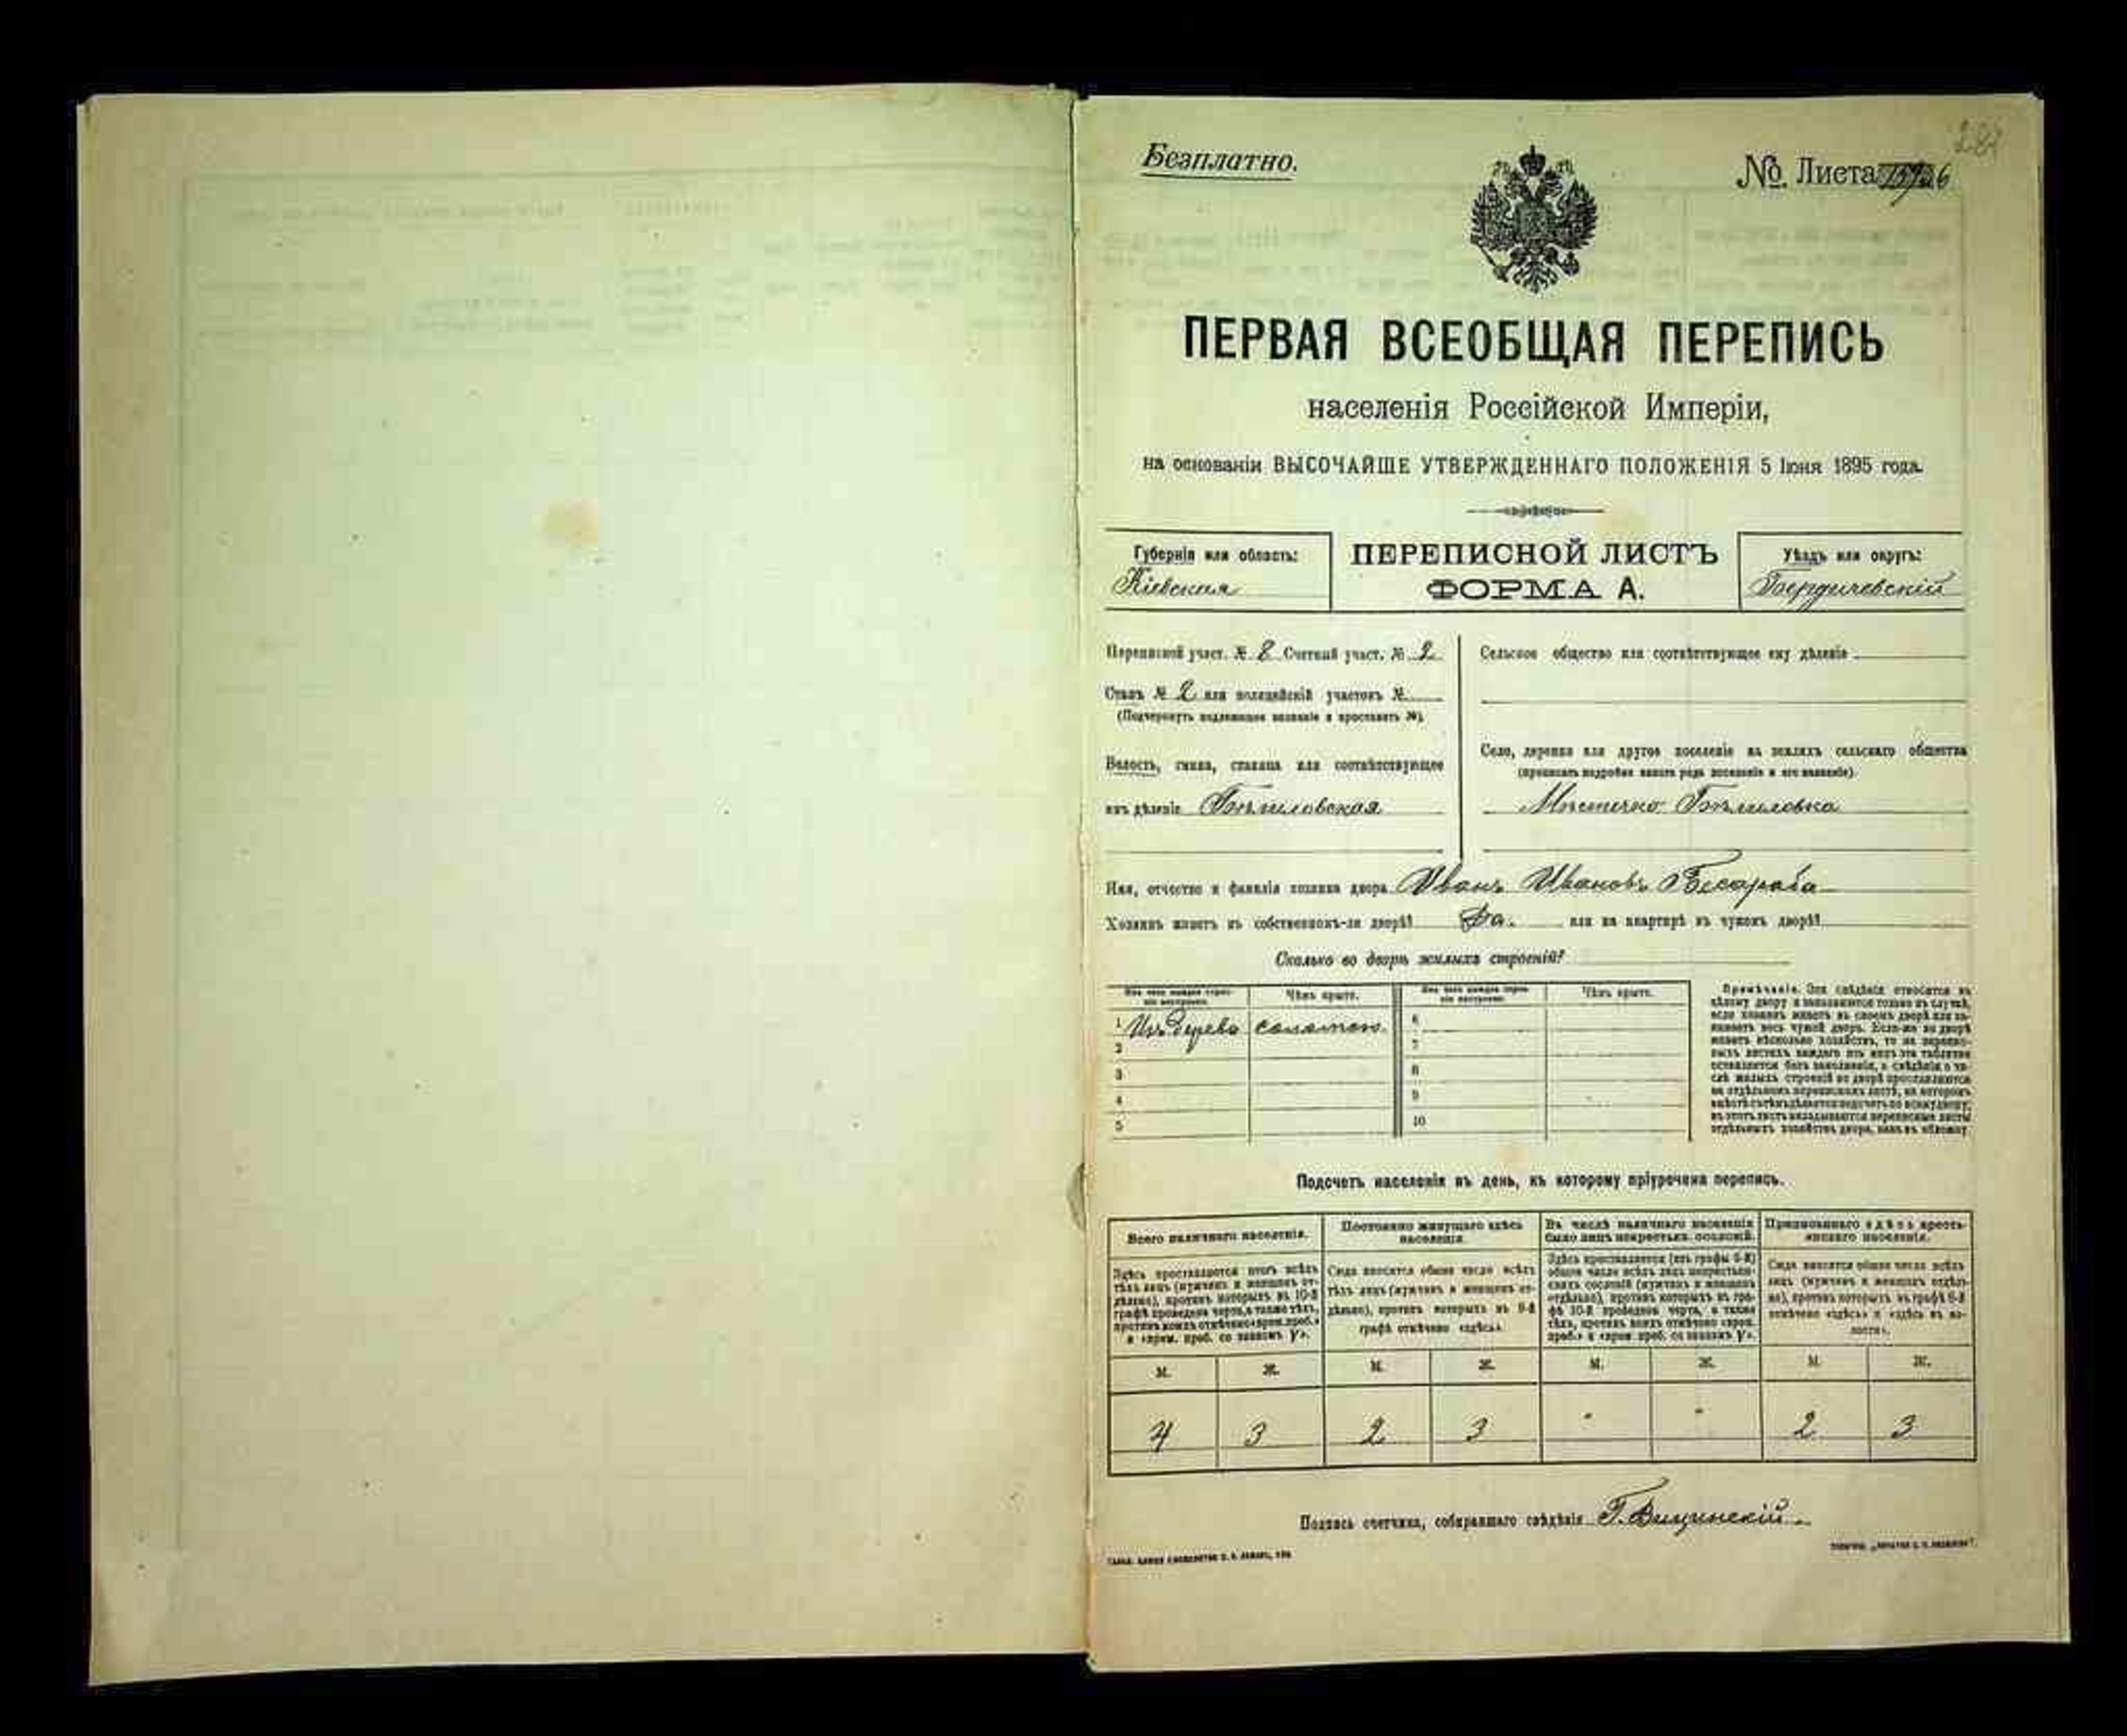 Безплатно.
№ Листа
ПЕРВАЯ ВСЕОБЩАЯ ПЕРЕПИСЬ
населенія Россійской Имперіи,
на основаніи ВЫСОЧАЙШЕ УТВЕРЖДЕННАГО ПОЛОЖЕНІЯ 5 Іюня 1895 года.
Губернія или область:
Кіевская
ПЕРЕПИСНОЙ ЛИСТЪ
ФОРМА А.
Уѣздъ или округъ:
Бердичевскій
Переписной участ. № 8 Счетный участ. № 2
Станъ № 2 или полицейскій участокъ №
(Подчеркнуть надлежащее названіе и проставить №).
Волость, гмина, станица или соотвѣтствующее
имъ дѣленіе Бѣлиловская
Сельское общество или соотвѣтствующее ему дѣленіе
Село, деревня или другое поселеніе на земляхъ сельскаго общества
(прописать подробно какого рода поселеніе и его названіе).
Мѣстечко Бѣлиловка
Имя, отчество и фамилія хозяина двора Иванъ Ивановъ Бесараба
Хозяинъ живетъ въ собственномъ-ли дворѣ? Да. или на квартирѣ въ чужомъ дворѣ?
Сколько во дворѣ жилыхъ строеній?
Изъ чего каждое строеніе построено.
Чѣмъ крыто.
Изъ чего каждое строеніе построено.
Чѣмъ крыто.
1 Изъ дерева соломою
2
3
4
5
6
7
8
9
10
Примѣчаніе. Эти свѣдѣнія относятся къ
цѣлому двору и заполняются только въ случаѣ,
если хозяинъ живетъ въ своемъ дворѣ или за-
нимаетъ весь чужой дворъ. Если-же во дворѣ
живетъ нѣсколько хозяйствъ, то на перепис-
ныхъ листахъ каждаго изъ нихъ эта табличка
оставляется безъ заполненія, а свѣдѣнія о чи-
слѣ жилыхъ строеній во дворѣ проставляются
на отдѣльномъ переписномъ листѣ, на которомъ
вмѣстѣ съ тѣмъ дѣлается подсчетъ по всему двору;
въ этотъ листъ вкладываются переписные листы
отдѣльныхъ хозяйствъ двора, какъ въ обложку.
Подсчетъ населенія въ день, къ которому пріурочена перепись.
Всего наличнаго населенія.
Здѣсь проставляется итогъ всѣхъ
тѣхъ лицъ (мужчинъ и женщинъ от-
дѣльно), противъ которыхъ въ 10-й
графѣ проведена черта, а также тѣхъ,
противъ коихъ отмѣчено «врем. проб.»
и «врем. проб. со знакомъ V».
Постоянно живущаго здѣсь
населенія.
Сюда вносится общее число всѣхъ
тѣхъ лицъ (мужчинъ и женщинъ от-
дѣльно), противъ которыхъ въ 9-й
графѣ отмѣчено «здѣсь».
Въ числѣ наличнаго населенія
было лицъ некрестьян. сословій.
Здѣсь проставляется (изъ графы 5-й)
общее число всѣхъ лицъ некрестьян-
скихъ сословій (мужчинъ и женщинъ
отдѣльно), противъ которыхъ въ гра-
фѣ 10-й проведена черта, а также
тѣхъ, противъ коихъ отмѣчено «врем.
проб.» и «врем. проб. со знакомъ V».
Приписаннаго здѣсь кресть-
янскаго населенія.
Сюда вносится общее число всѣхъ
лицъ (мужчинъ и женщинъ отдѣль-
но), противъ которыхъ въ графѣ 6-й
отмѣчено «здѣсь» и «здѣсь въ во-
лости».
М. Ж. М. Ж. М. Ж. М. Ж.
4 3 2 3 " " 2 3
Подпись счетчика, собиравшаго свѣдѣнія Г. Вицинскій